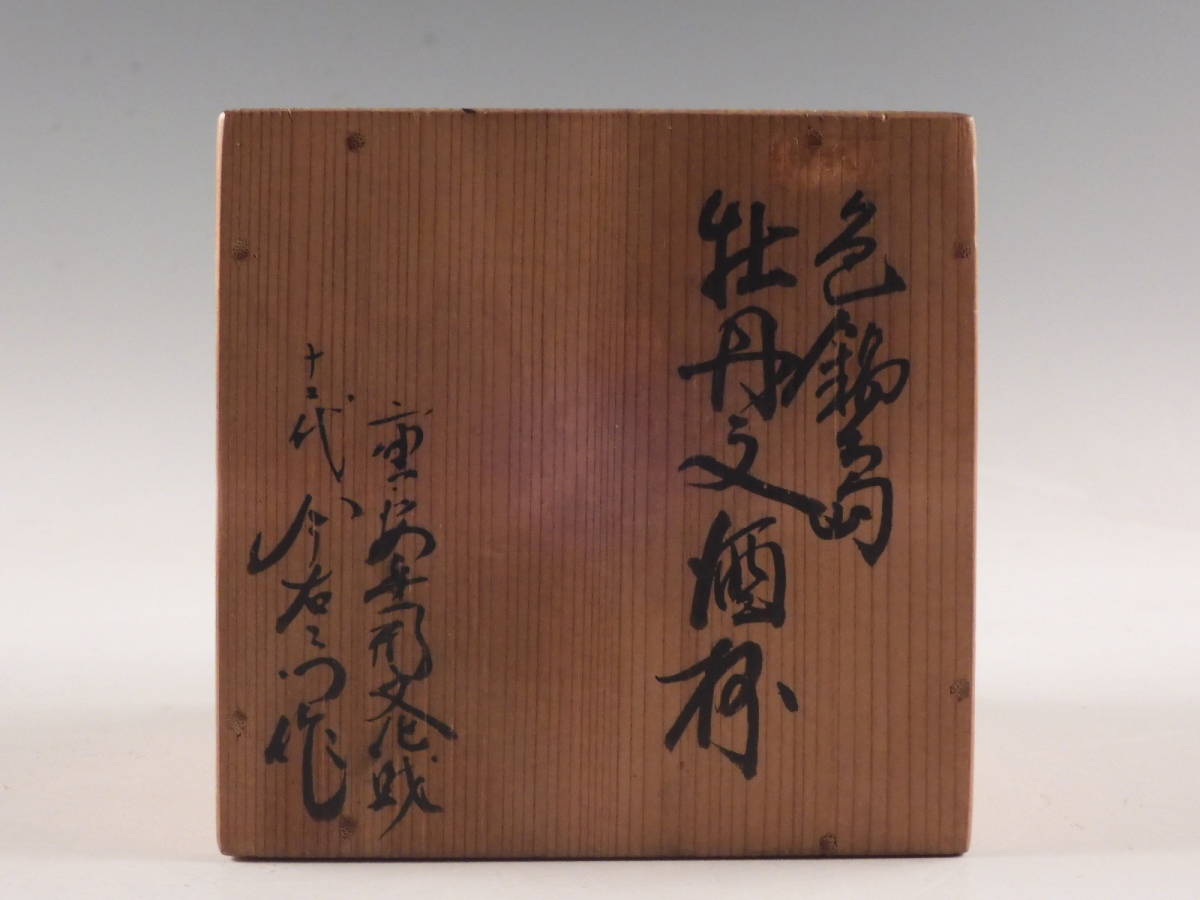 色鍋島
牡丹文酒杯
重要無形文化財
十三代今右衛門作